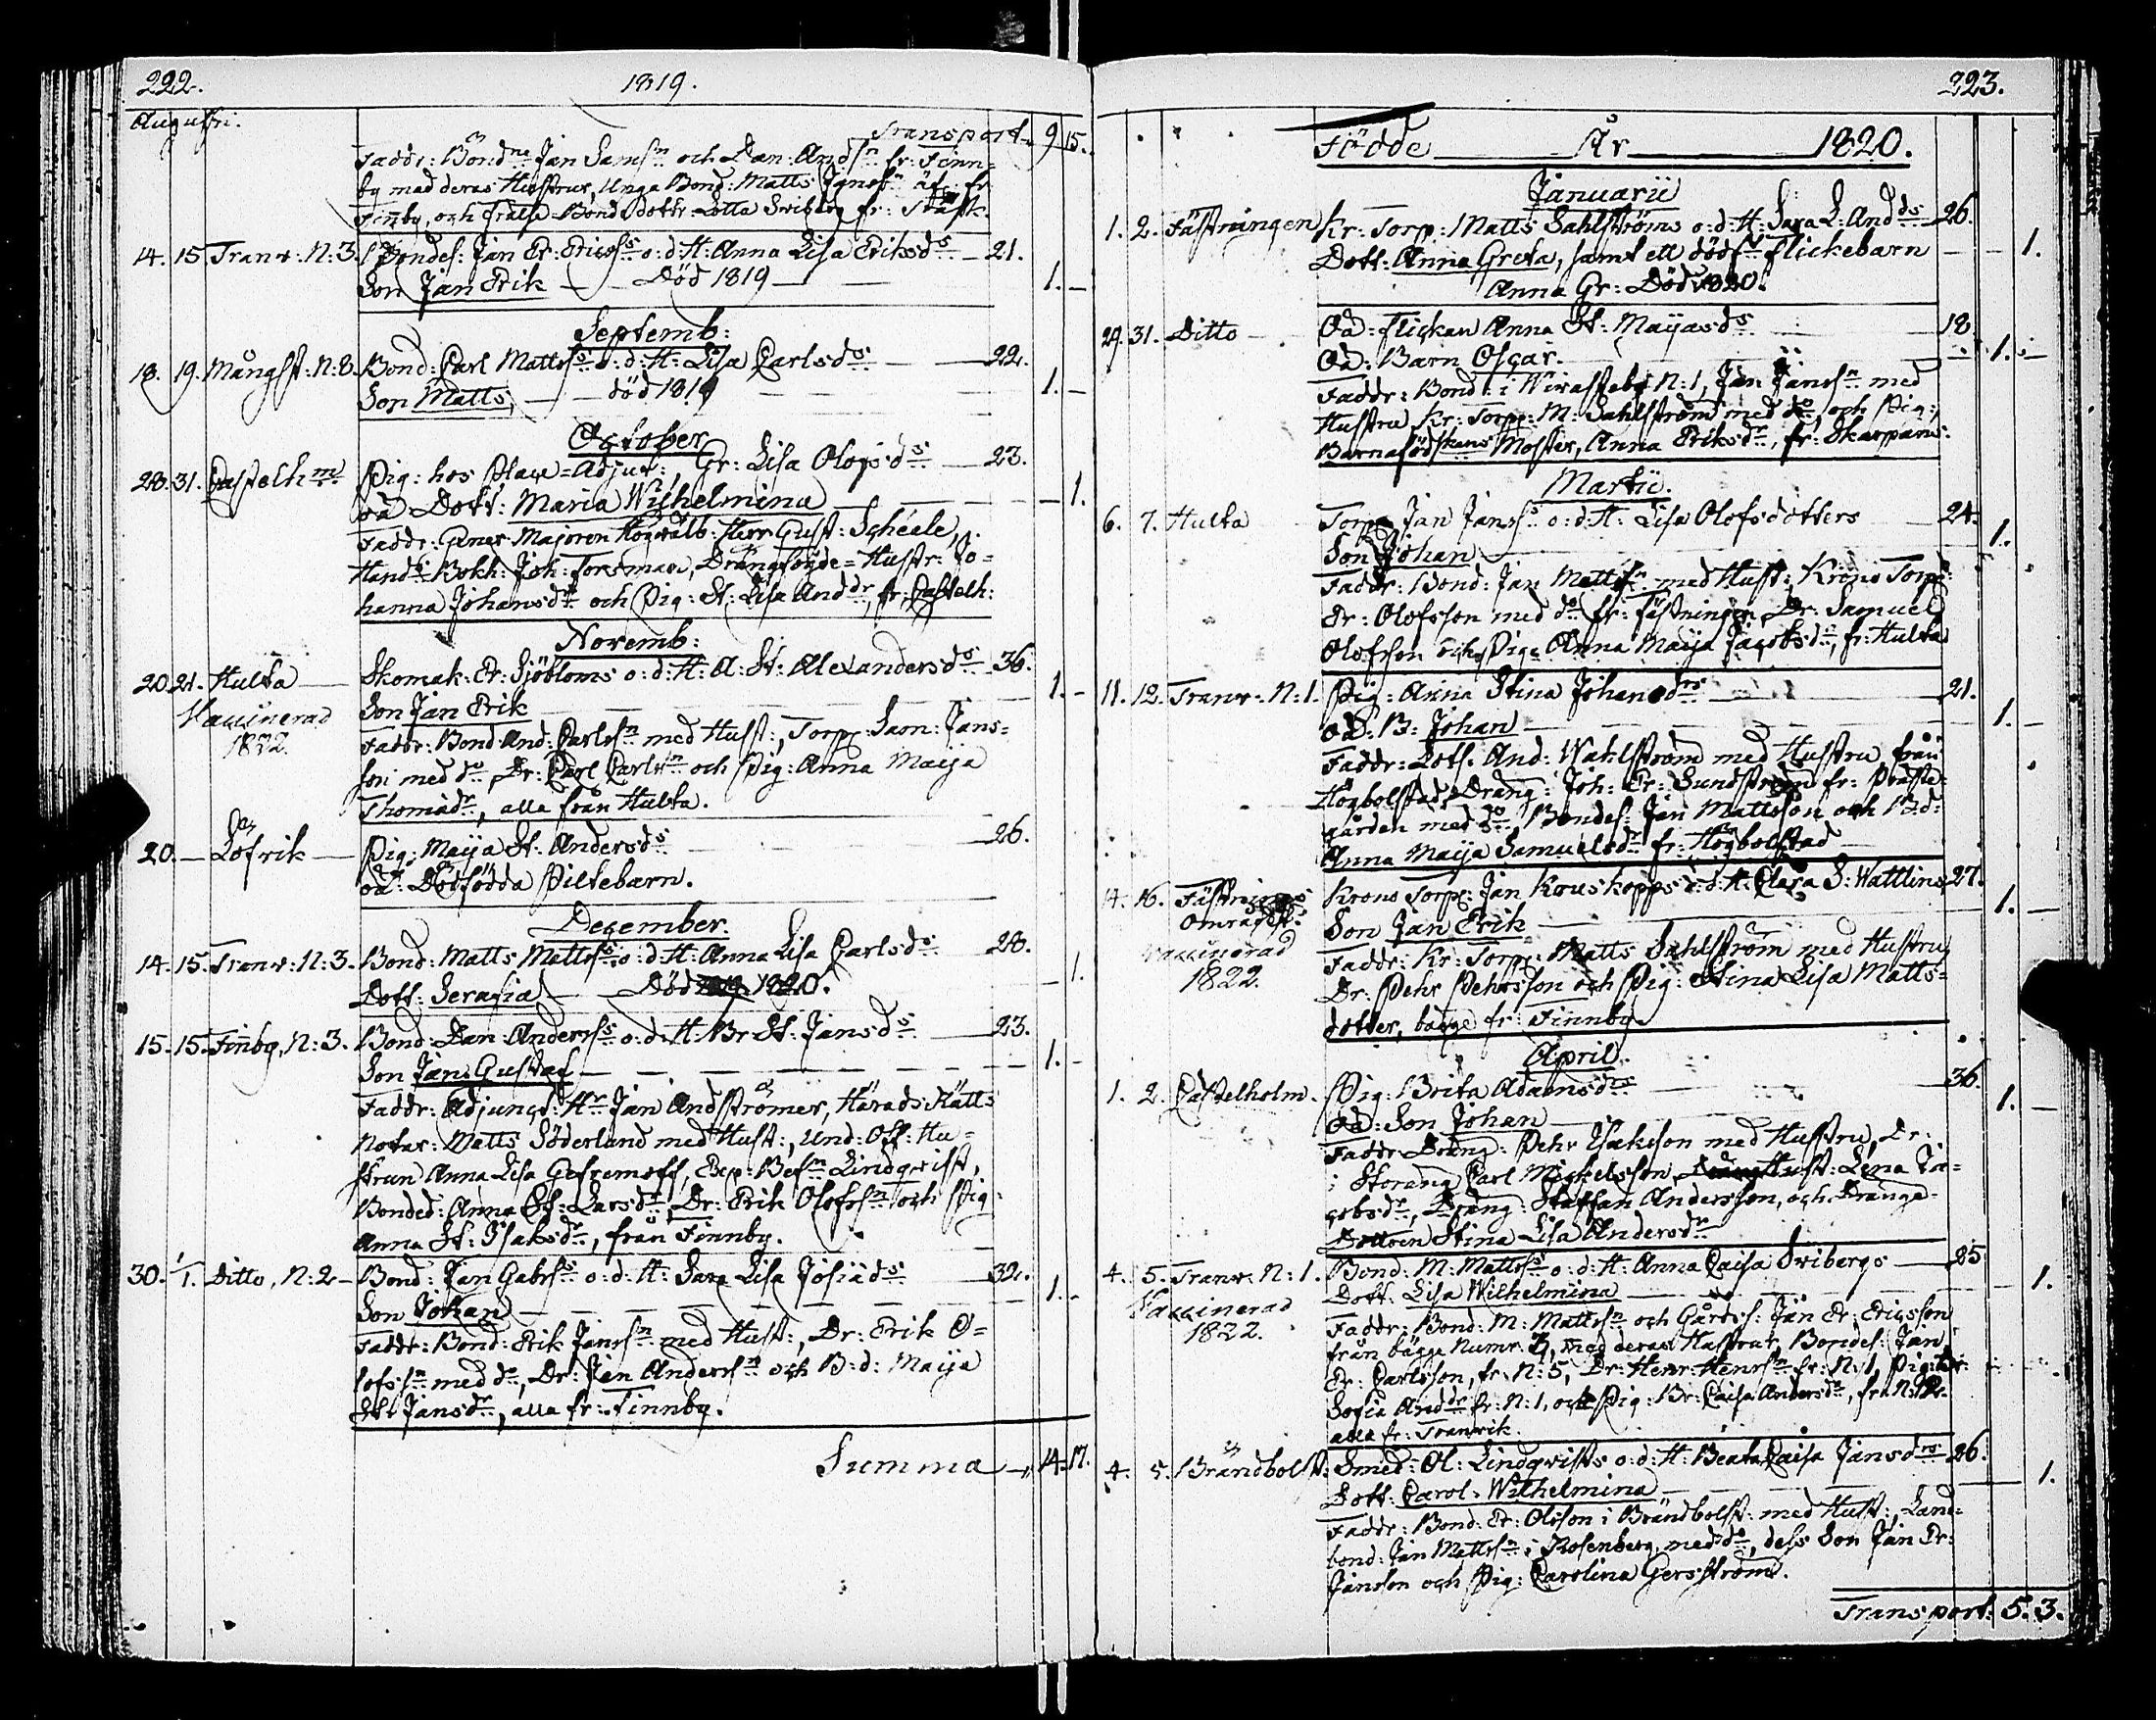 222.
1819.
Augusti.
Transport 9 15.
Faddr: Bönd:ne Jan Sams:n och Dan: Ands:n fr: Finn=
by med deras Hustrur, Unga Bond: Matts Jansn äf: fr
Finby, och Bond dottr Lotta fr:
14. 15. Tranv: N:3. Bondes: Jan Er: Ericss:s o: d: H: Anna Lisa Eriksd:s 21.
Son Jan Erik — Död 1819 — 1. —
Septemb:
18. 19. Mångst: N:8. Bond: Carl Mattss:s o: d: H: Lisa Carlsd:s 22.
Son Matts, — död 1819 1. —
October
28. 31. Castelh:m Pig: hos Adjut:, Gr: Lisa Olofsd:s 23.
oä Dott: Maria Wilhelmina — 1.
Faddr: Majoren Högvälb: Herr Gust: Schéele,
Hand:s Bokh: Joh: Forsman, Hustr: Jo=
hanna Johansd:r och Pig: St: Lisa And:dr, fr: Castelh:
Novemb:
20. 21. Hulta Skomak: Er: Sjöbloms o: d: H: A: St: Alexandersd:s 36.
Son Jan Erik 1. —
Vaccinerad
1822.
Faddr: Bond And: Carlss:n med Hust:, Torp: Sam: Jans=
son med d:o, Dr: Carl Carlss:n och Pig: Anna Maija
Thomäd:r, alla från Hulta.
20. — Löfvik — Pig: Maija St: Andersd:s 26.
oä: Dödfödda Piltebarn.
December.
14. 15. Tranv: N:3. Bond: Matts Mattss:s o: d: H: Anna Lisa Carlsd:s 28.
Dott: Serafia — Död 1820. — 1.
15. 15. Finby, N:3. Bond: Dan: Anderss:s o: d: H: Br St: Jansd:s 23.
Son Jan Gustaf 1. —
Faddr: Adjunct: H:r Jan Andströmer, Härads Rätts
Notar: Matts Söderlund med Hust:, Und: Off: Hu=
strun Anna Lisa Lindqvist,
Bonded: Anna St: Larsd:r, Dr: Erik Olofss:n och Pig:
Anna St: Isaksd:r, från Finnby.
30. 1/1. Ditto, N:2 — Bond: Jan Gabrss:s o: d: H: Sara Lisa Josiäd:s 32.
Son Johan 1. —
Faddr: Bond: Erik Janss:n med Hust:, Dr: Erik O=
lofss:n med d:o, Dr: Jan Anderss:n och B:d: Maija
St: Jansd:r, alla fr: Finnby.
Summa 14. 17.
223.
Födde År 1820.
Januarii
1. 2. Fästningen Kr: Torp: Matts Sahlströms o: d: H: Sara L: And:ds 26.
Dott: Anna Greta, samt ett dödf:t Flickebarn — 1.
Anna Gr: Död 1820.
29. 31. Ditto — Oä: Flickan Anna St: Maijasd:s 18.
Oä: Barn Osçar. 1. —
Faddr: Bond: i N:1, Jan Janss:n med
Hustru Kr: Torp: M: Sahlström med d:o, och Pig:
Barnaföderskans Moster, Anna Eriksd:r, fr: Skarpans:
Martii.
6. 7. Hulta Torp: Jan Janss:s o: d: H: Lisa Olofsdotters 24.
Son Johan 1.
Faddr: Bond: Jan Mattss:n med Hust:, Krono Torp:
Er: Olofsson med d:o fr: Fästningen, Dr: Samuel
Olofsson och Pig: Anna Maija Jacobsd:r, fr: Hulta
11. 12. Tranv: N:1. Pig: Anna Stina Johansd:rs 21.
oä: B: Johan 1. —
Faddr: Lots: And: Wahlström med Hustru från
Högbolstad, Dräng: Joh: Er: Sundström fr: Präste=
gården med d:o, Bondes: Jan Mattsson och B:d:
Anna Maija Samuelsd:r fr: Högbolstad
14. 16. Fästnings Krono Torp: Jan Kouskopps o: d: H: Clara S: Wattlins 27.
Områd: Son Jan Erik 1. —
Vaccinerad
1822.
Faddr: Kr: Torp: Matts Sahlström med Hustru,
Dr: Pehr Pehrsson och Pig: Stina Lisa Matts=
dotter, bägge fr: Finnby.
April.
1. 2. Castelholm. Pig: Brita Adamsd:rs 36.
Oä: Son Johan 1. —
Faddr: Dräng: Pehr Isaksson med Hustru, Dr:
i Storäng Carl Mickelsson, Hust: Lena Ja=
cobsd:r, Dräng: Staffan Andersson, och Dränga=
Dottren Stina Lisa Andersd:r
4. 5. Tranv: N:1. Bond: M: Mattss:s o: d: H: Anna Caisa Svibergs 25
Dott: Lisa Wilhelmina — 1.
Vaccinerad
1822.
Faddr: Bond: M: Mattss:n och Gårdss: Jan Er: Ericsson
från bägge Numr: 3, med deras Hustrur, Bondes: Jan
Er: Carlsson, fr: N:5, Dr: Henr: Henrss:n fr: N:1, Pig:
Sofia And:dr fr: N:1, och Pig: Br: Caisa Andersd:r, fr: N:
alla fr: Tranvik.
4. 5. Brändbolst: Smed: Ol: Lindqvists o: d: H: Beata Caisa Jansd:rs 26.
Dott: Carol: Wilhelmina — 1.
Faddr: Bond: Er: Olsson i Brändbolst: med Hust:, Land=
bond: Jan Mattss:n i Rosenberg med d:o, dess Son Jan Er:
Jansson och Pig: Carolina Gersström.
Transport: 5. 3.